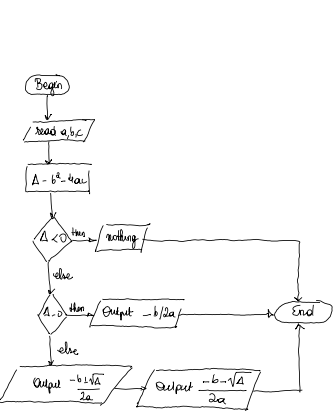 Begin
read a,b,c
Δ - b² - 4ac
Δ < 0
then
nothing
else
Δ - 0
then
Output - b/2a
End
else
Output -b+√Δ / 2a
Output -b-√Δ / 2a